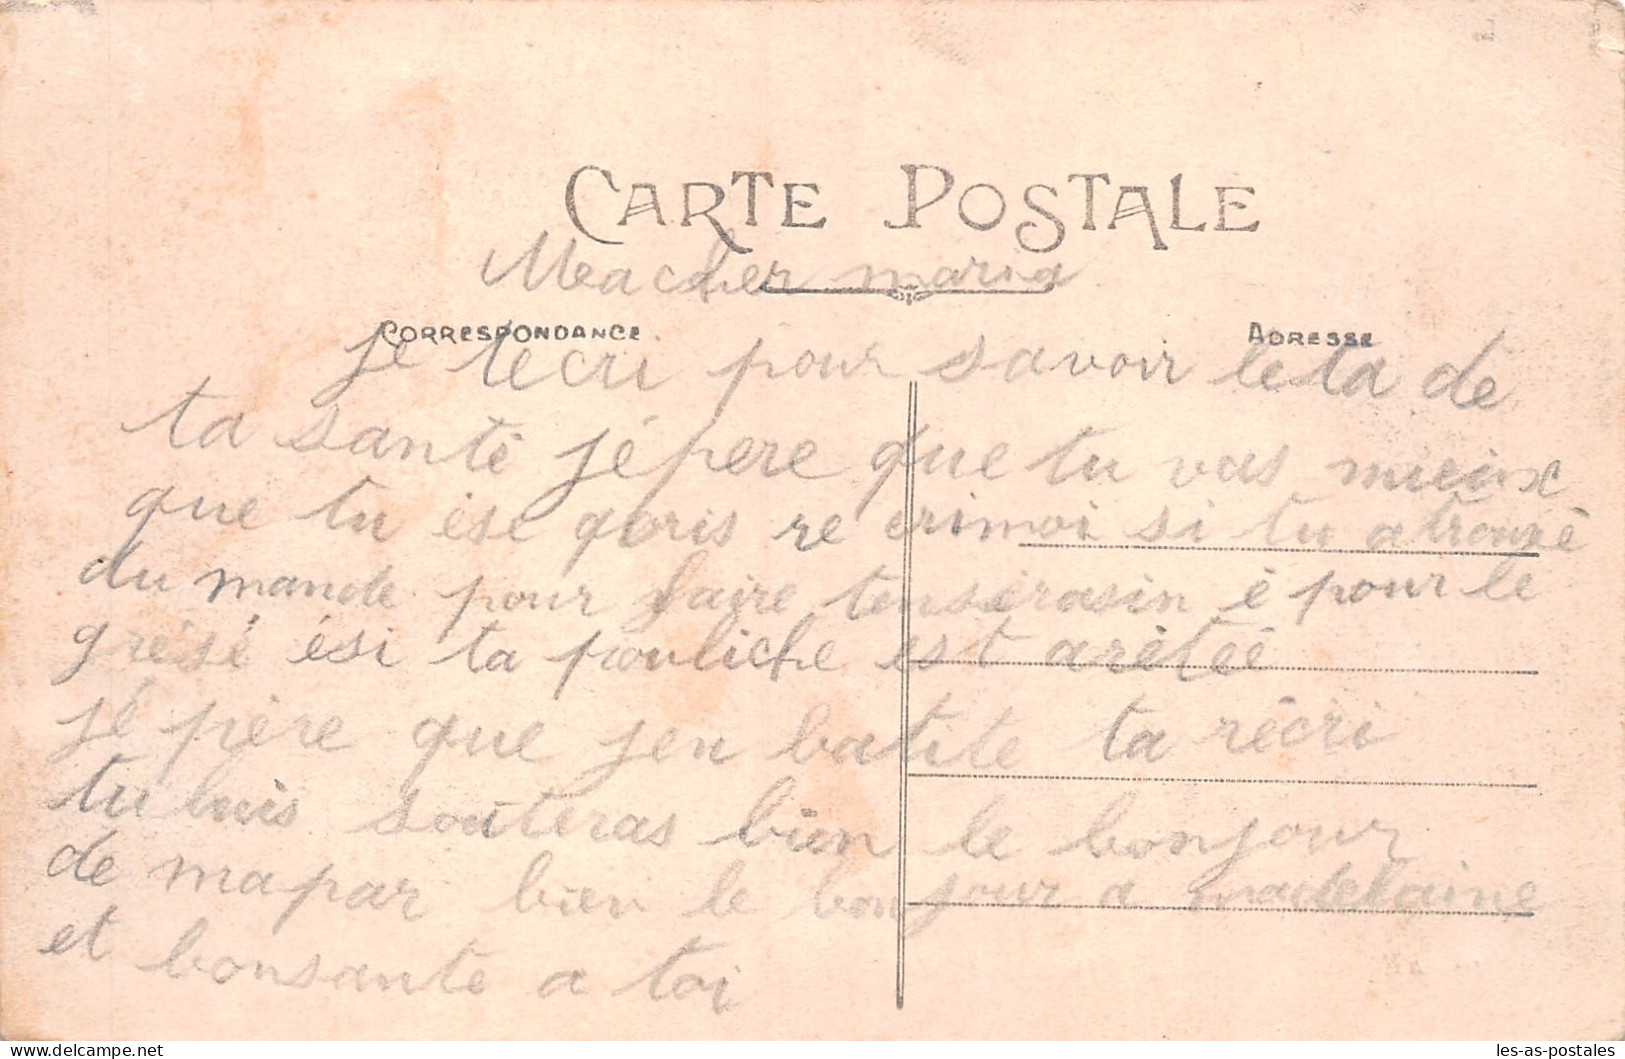 CARTE POSTALE
Macher maria
CORRESPONDANCE
ADRESSE
je tecri pour savoir leta de
ta santé jépere que tu vas mieux
que tu ese goris re crimoi si tu a trouvé
du mande pour faire tenserasin é pour le
grésé ési ta pouliche est arètéé
jé père que jen batite ta récri
tu leuis souteras bien le bonjour
de mapar bien le bonjour a madelaine
et bonsante a toi
delcampe.net
les-as-postales